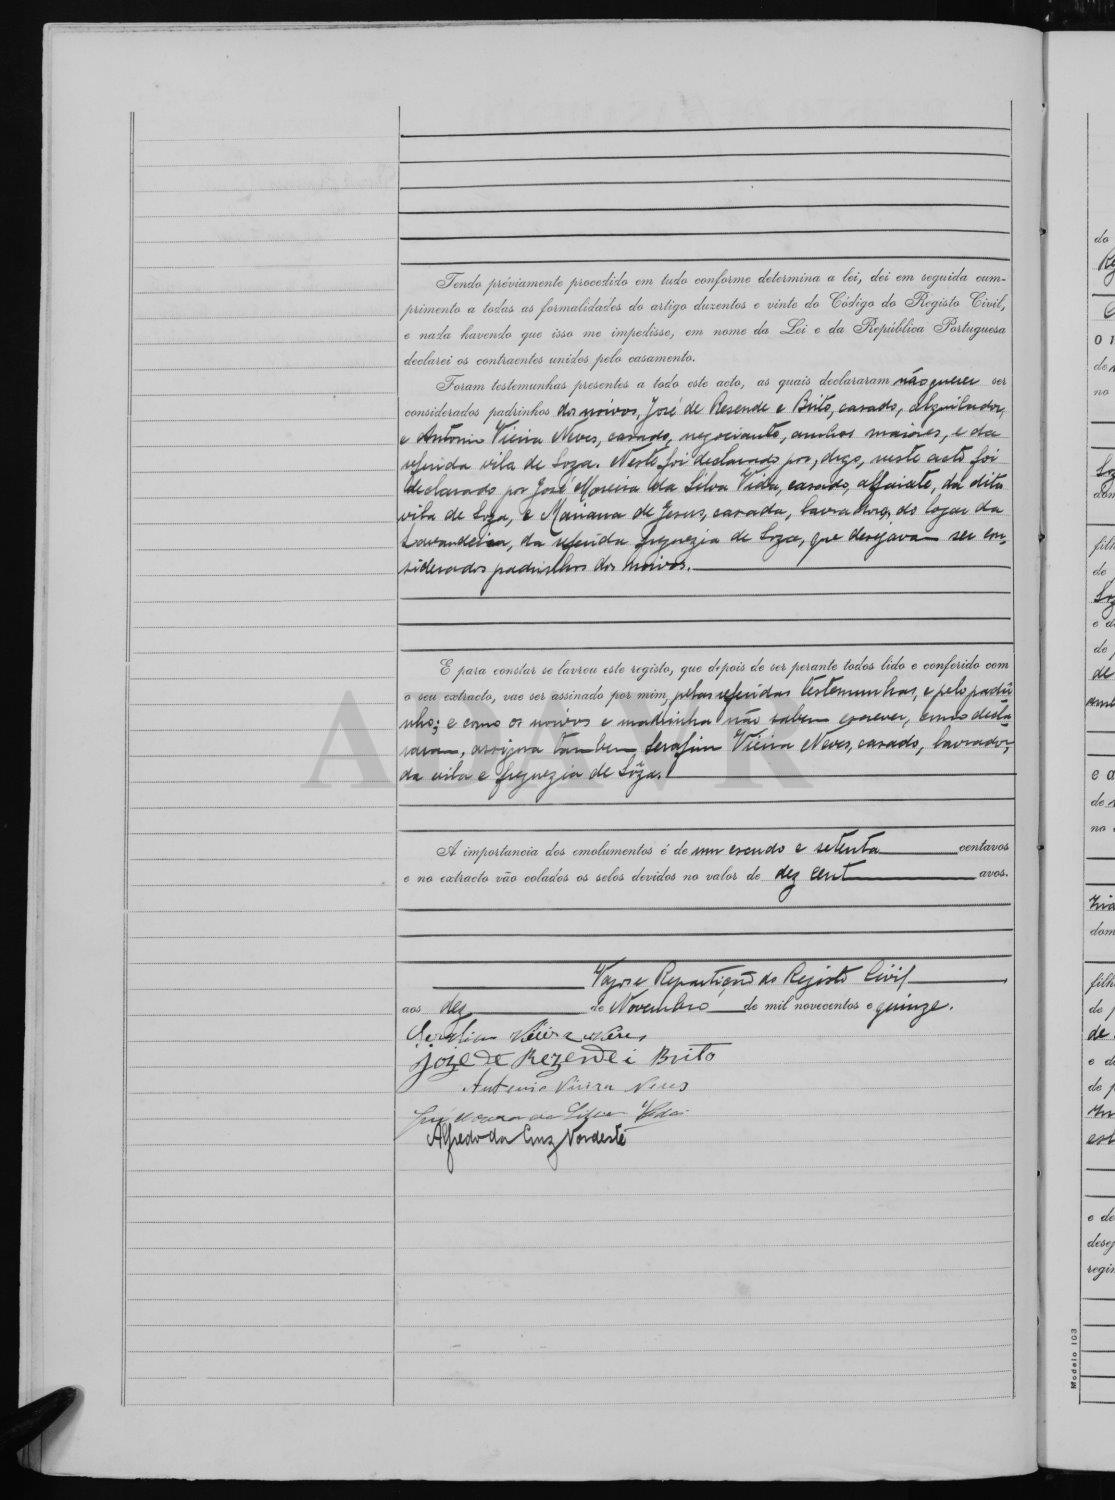 Tendo préviamente procedido em tudo conforme determina a lei, dei em seguida cum-
primento a todas as formalidades do artigo duzentos e vinte do Código do Registo Civil,
e nada havendo que isso me impedisse, em nome da Lei e da República Portuguesa
declarei os contraentes unidos pelo casamento.
Foram testemunhas presentes a todo este acto, as quais declararam não querer ser
considerados padrinhos dos noivos, José de Resende e Brito, casado, alquilador,
e Antonio Vieira Neves, casado, negociante, ambos maiores, e da
referida vila de Soza. Neste foi declarado por, digo, neste acto foi
declarado por José Moreira da Silva Vidra, casado, alfaiate, da dita
vila de Soza, e Mariana de Jesus, casada, lavradora, do logar da
Lavandeira, da referida freguezia de Soza, que desejavam ser con-
siderados padrinhos dos noivos.
E para constar se lavrou este registo, que depois de ser perante todos lido e conferido com
o seu extracto, vae ser assinado por mim, pelas referidas testemunhas, e pelo padri
nho; e como os noivos e madrinha não sabem escrever, como decla-
raram, assigna tambem Serafim Vieira Neves, casado, lavrador,
da vila e freguezia de Sôza.
A importancia dos emolumentos é de um escudo e setenta centavos
e no extracto vão colados os selos devidos no valor de dez cent avos.
Vagos e Repartição do Registo Civil
aos dez de Novembro de mil novecentos e quinze.
Serafim Vieira Neves
joze de Rezende i Brito
Antonio Vieira Neves
José Moreira da Silva
Alfredo da Cruz Nordeste
ADAVR
do
01
de
no
filh
de
e d
de p
de
e o
de
no
dom
filh
de p
de
e d
de p
e de
desej
regi
Modelo 103